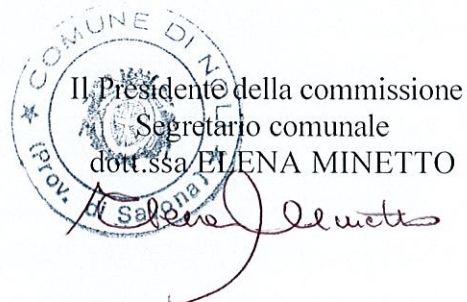 COMUNE DI NOLI
(Prov. di Savona)
Il Presidente della commissione
Segretario comunale
dott.ssa ELENA MINETTO
Elena Minetto